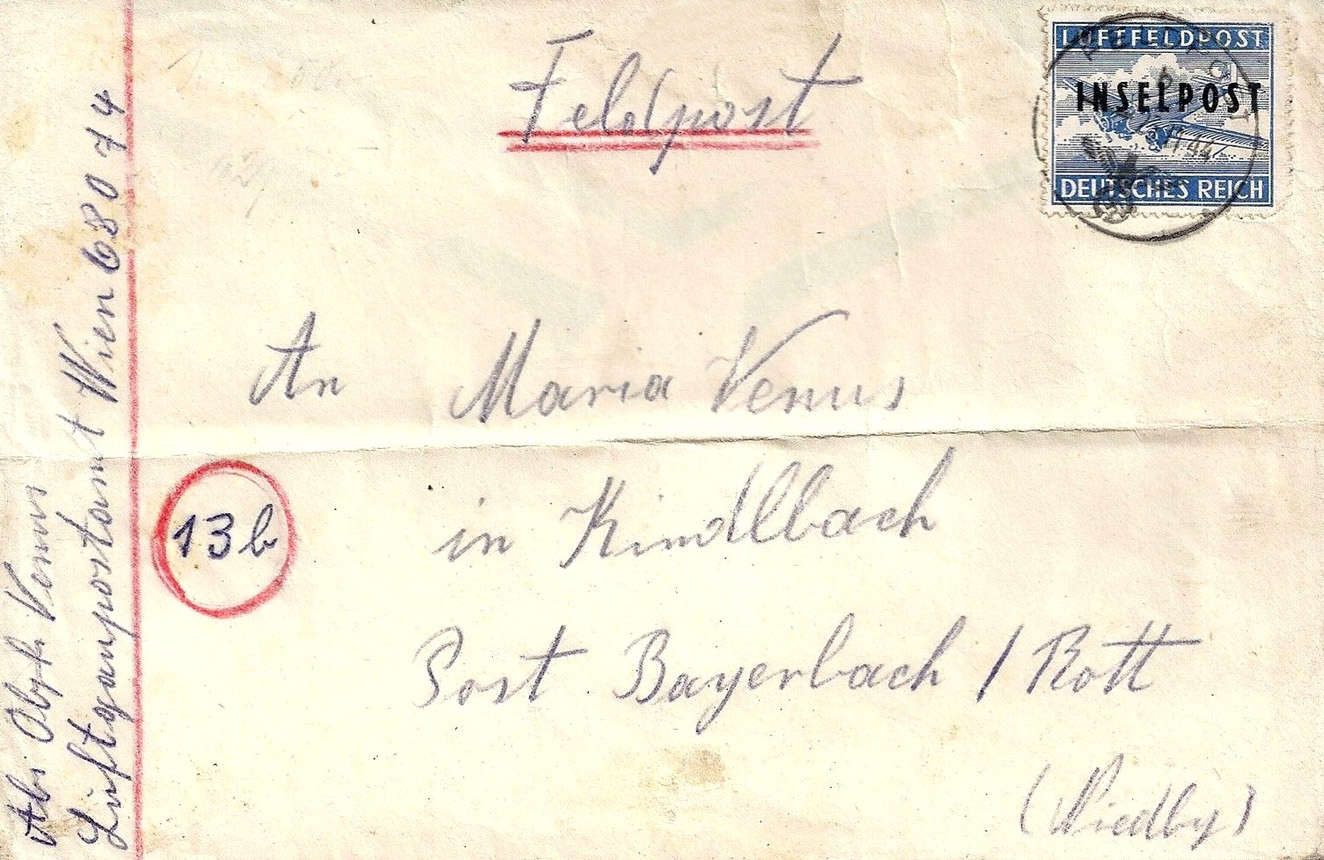 Feldpost
LUFTFELDPOST
INSELPOST
DEUTSCHES REICH
FELDPOST
b
44
An Maria Venus
13b
in Kindlbach
Post Bayerbach / Rott
(Niedby)
Abs Venus
Luftgaupostamt Wien 68074